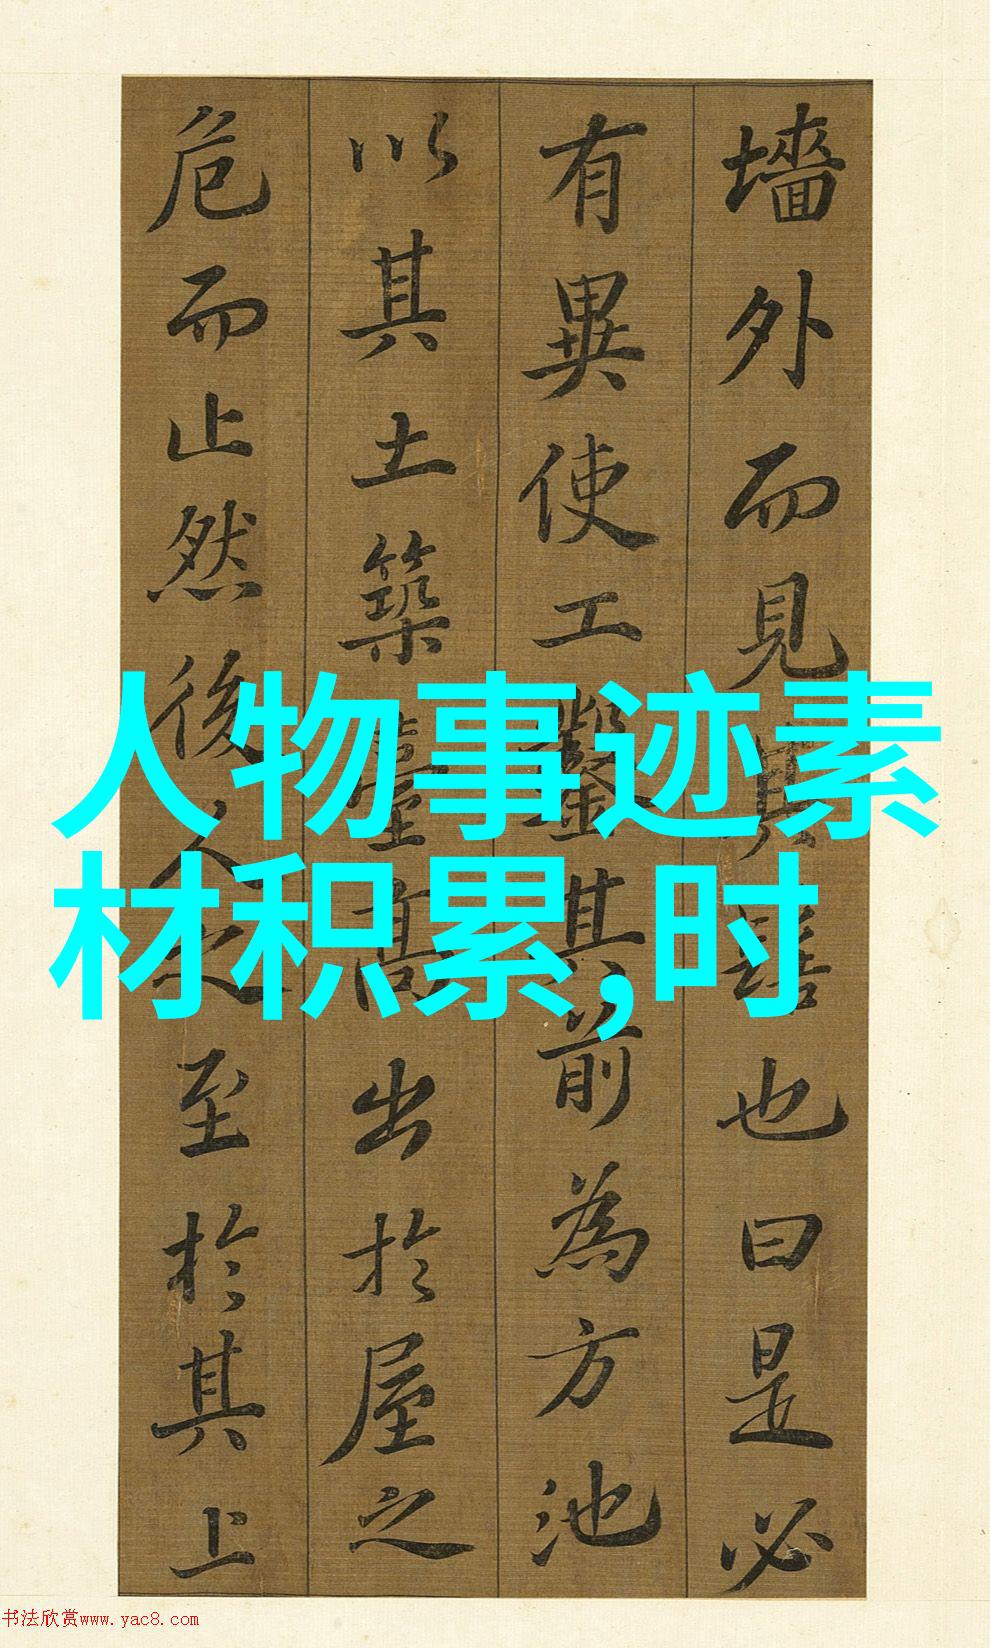 墻外而見其髻也曰是必
有異使工鑿其前為方池
以其土築臺高出於屋之
危而止然後人之至於其上
人物事迹素
材积累,时
书法欣赏www.yac8.com